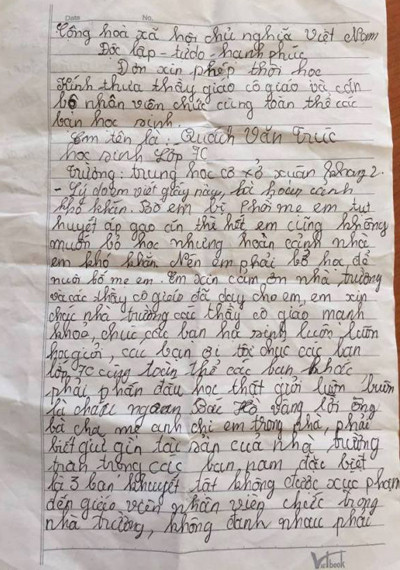 Date No.
Cộng hoà xã hội chủ nghĩa Việt Nam
Độc lập - tự do - hạnh phúc
Đơn xin phép thôi học
Kính thưa thầy giáo cô giáo và cán
bộ nhân viên chức cùng toàn thể các
bạn học sinh
Em tên là: Quách Văn Trúc
học sinh lớp 7C
Trường: trung học cơ sở xuân
- Lí do em viết giấy này, là hoàn cảnh
khó khăn. Bố em bị Phổi mẹ em tụt
huyết áp gạo ăn thì hết em cũng không
muốn bỏ học nhưng hoàn cảnh nhà
em khó khăn Nên em phải bỏ học để
nuôi bố mẹ em. Em xin cảm ơn nhà trường
và các thầy cô giáo đã dạy cho em, em xin
chúc nhà trường các thầy cô giáo mạnh
khoẻ, chúc các bạn học sinh luôn luôn
học giỏi, các bạn ơi tôi chúc các bạn
lớp 7C cùng toàn thể các bạn khác
phải phấn đấu học thật giỏi luôn luôn
là cháu ngoan Bác Hồ vâng lời ông
bà cha mẹ anh chị em trong nhà, phải
biết giữ gìn tài sản của nhà trường
trân trọng các bạn, nam đặc biệt
là 3 bạn khuyết tật không được xúc phạm
đến giáo viên nhân viên chức trong
nhà trường, không đánh nhau phải
Vietbook